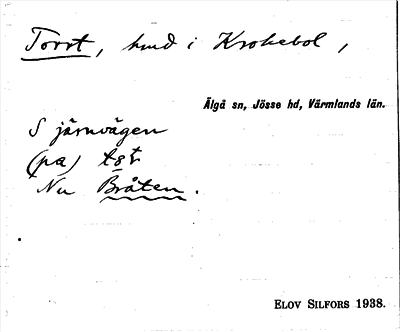 Torst, hmd i Krokebol,
Älgå sn, Jösse hd, Värmlands län.
S järnvägen
(pa) tgt
Nu Bråten.
ELOV SILFORS 1938.